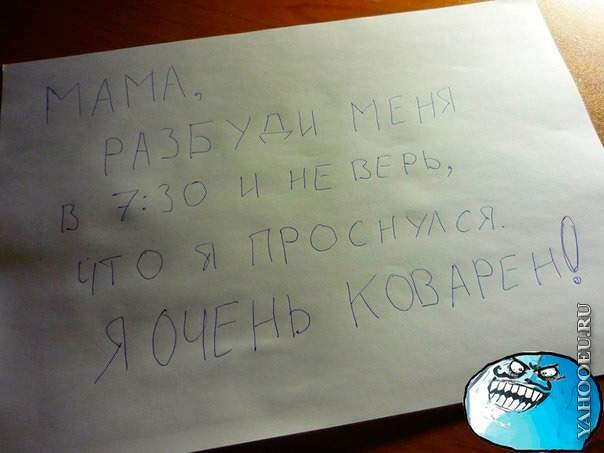 МАМА,
РАЗБУДИ МЕНЯ
В 7:30 И НЕ ВЕРЬ,
ЧТО Я ПРОСНУЛСЯ.
Я ОЧЕНЬ КОВАРЕН!
YAHOOEU.RU